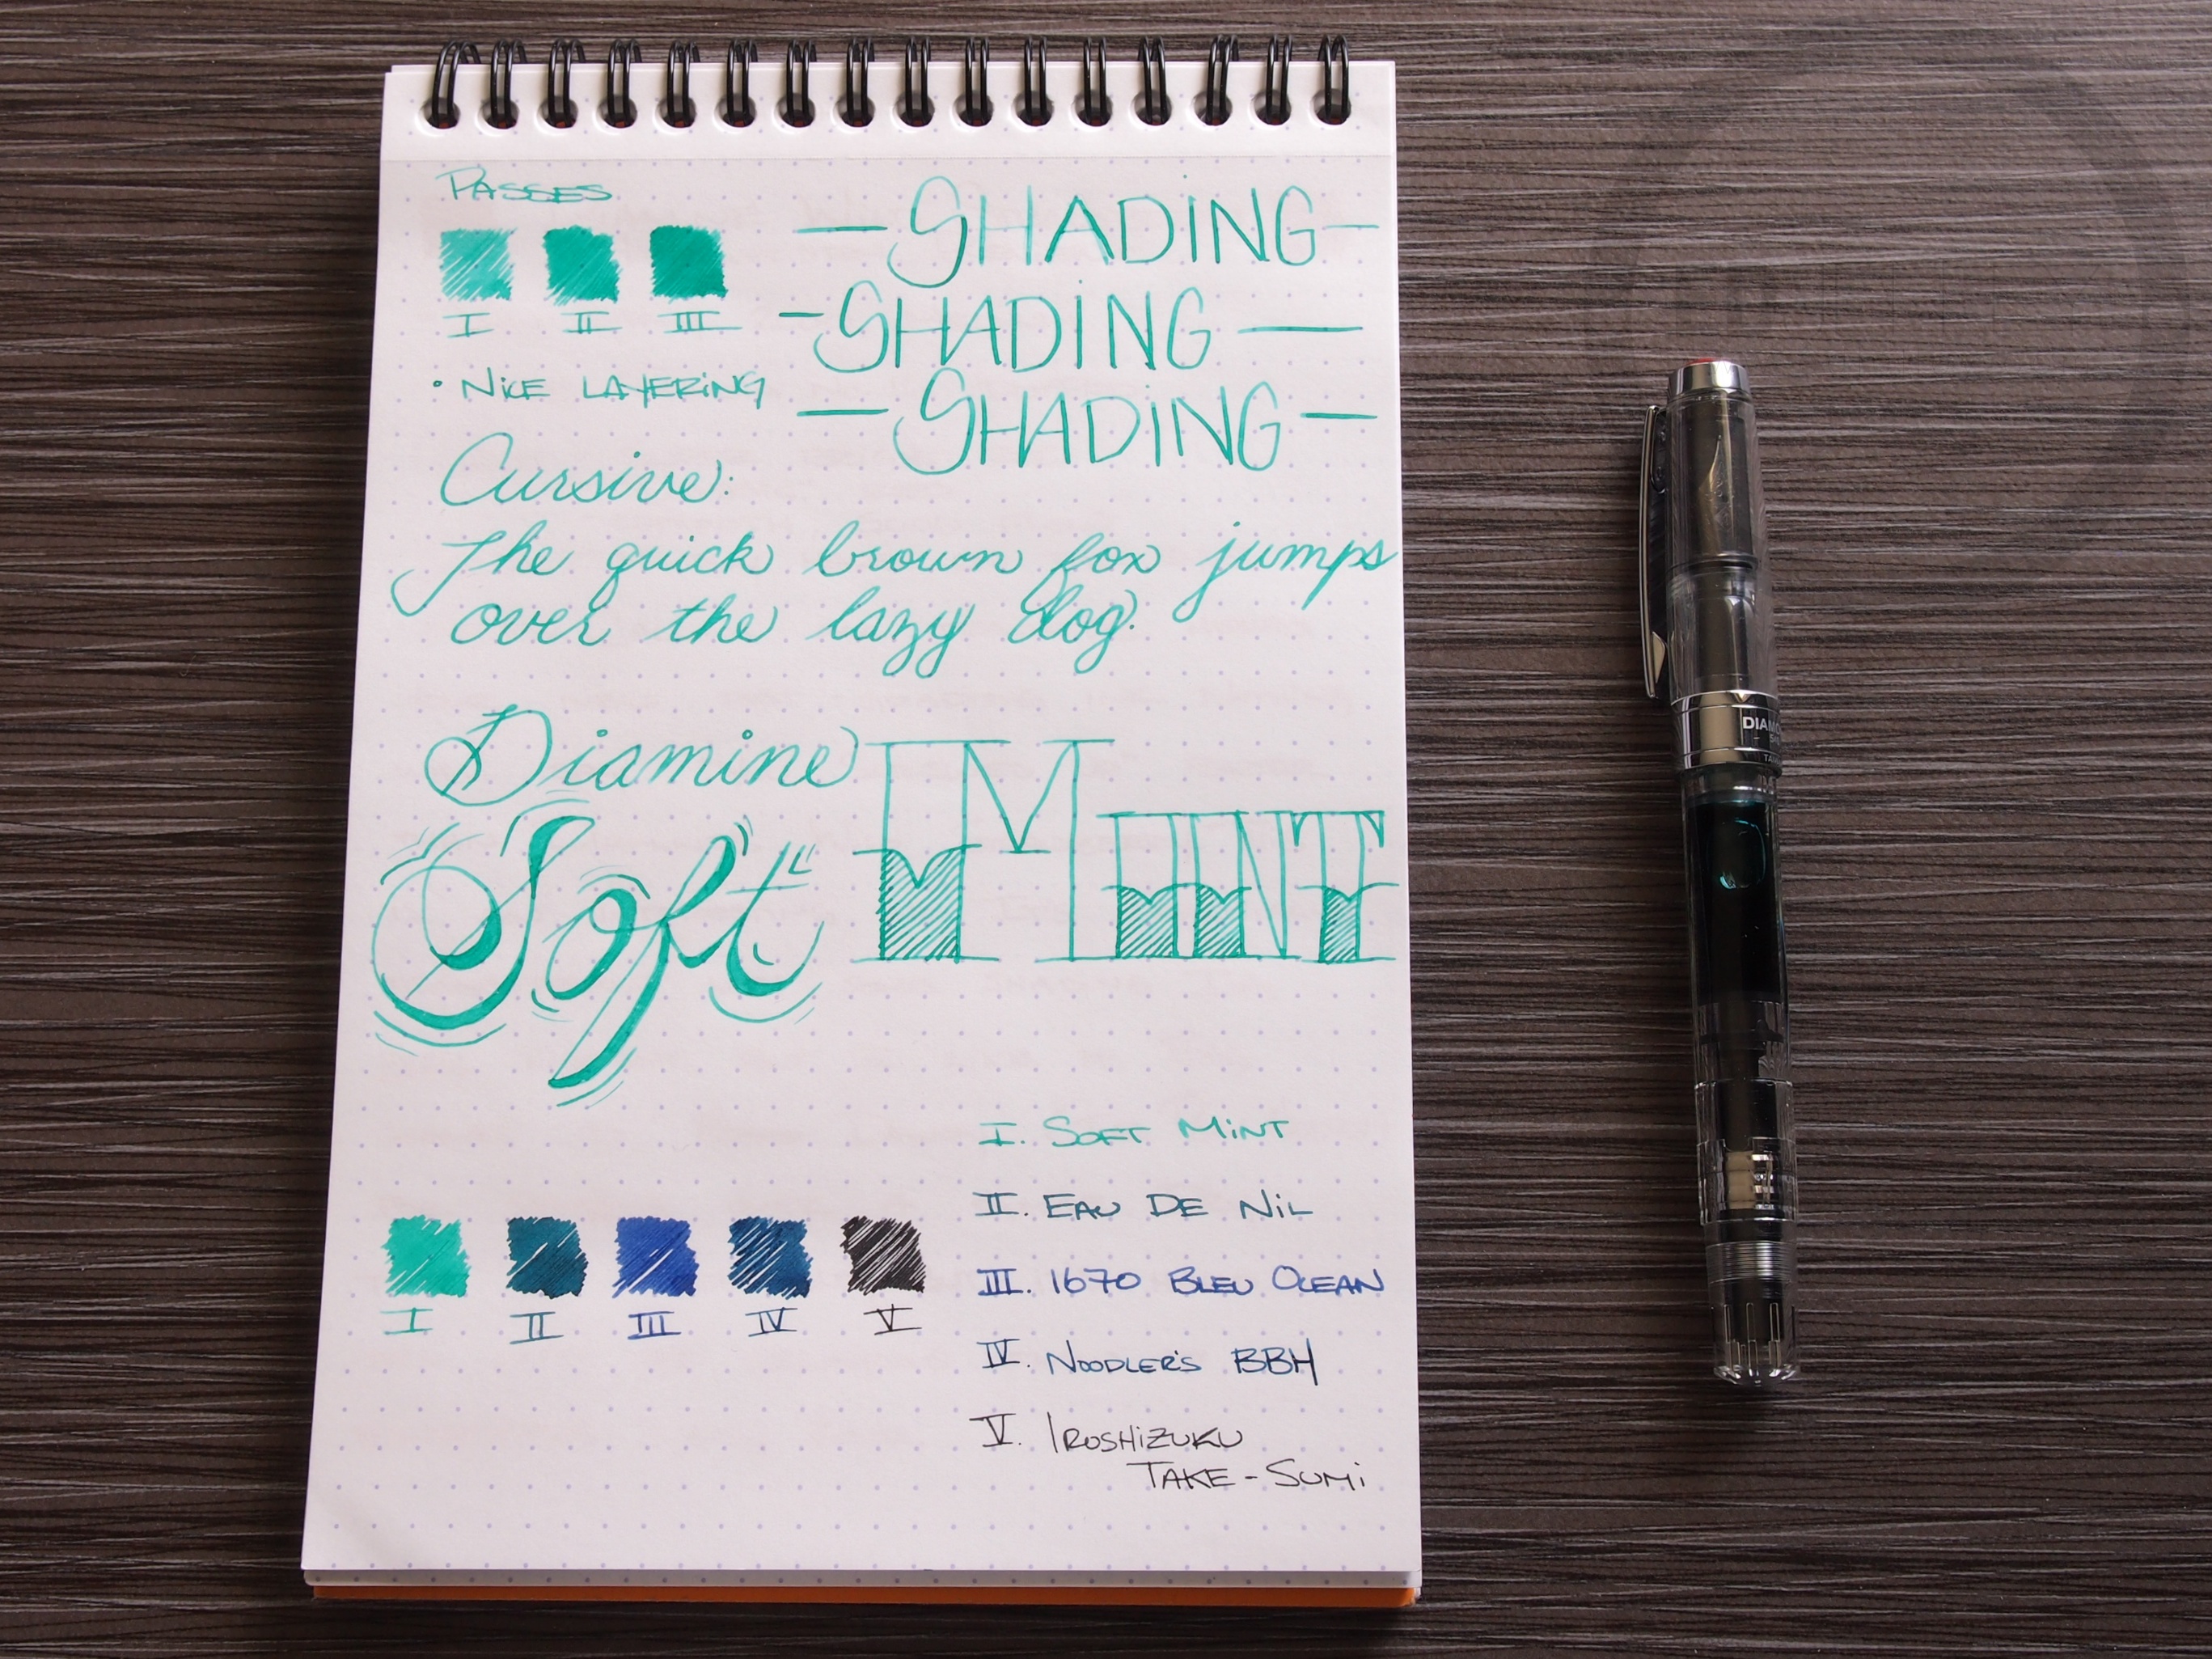 PASSES
I II III
• NICE LAYERING
— SHADING —
— SHADING —
— SHADING —
Cursive:
The quick brown fox jumps
over the lazy dog.
Diamine
Soft MINT
I II III IV V
I. SOFT MINT
II. EAU DE NIL
III. 1670 BLEU OCEAN
IV. NOODLER'S BBH
V. IROSHIZUKU
TAKE-SUMI